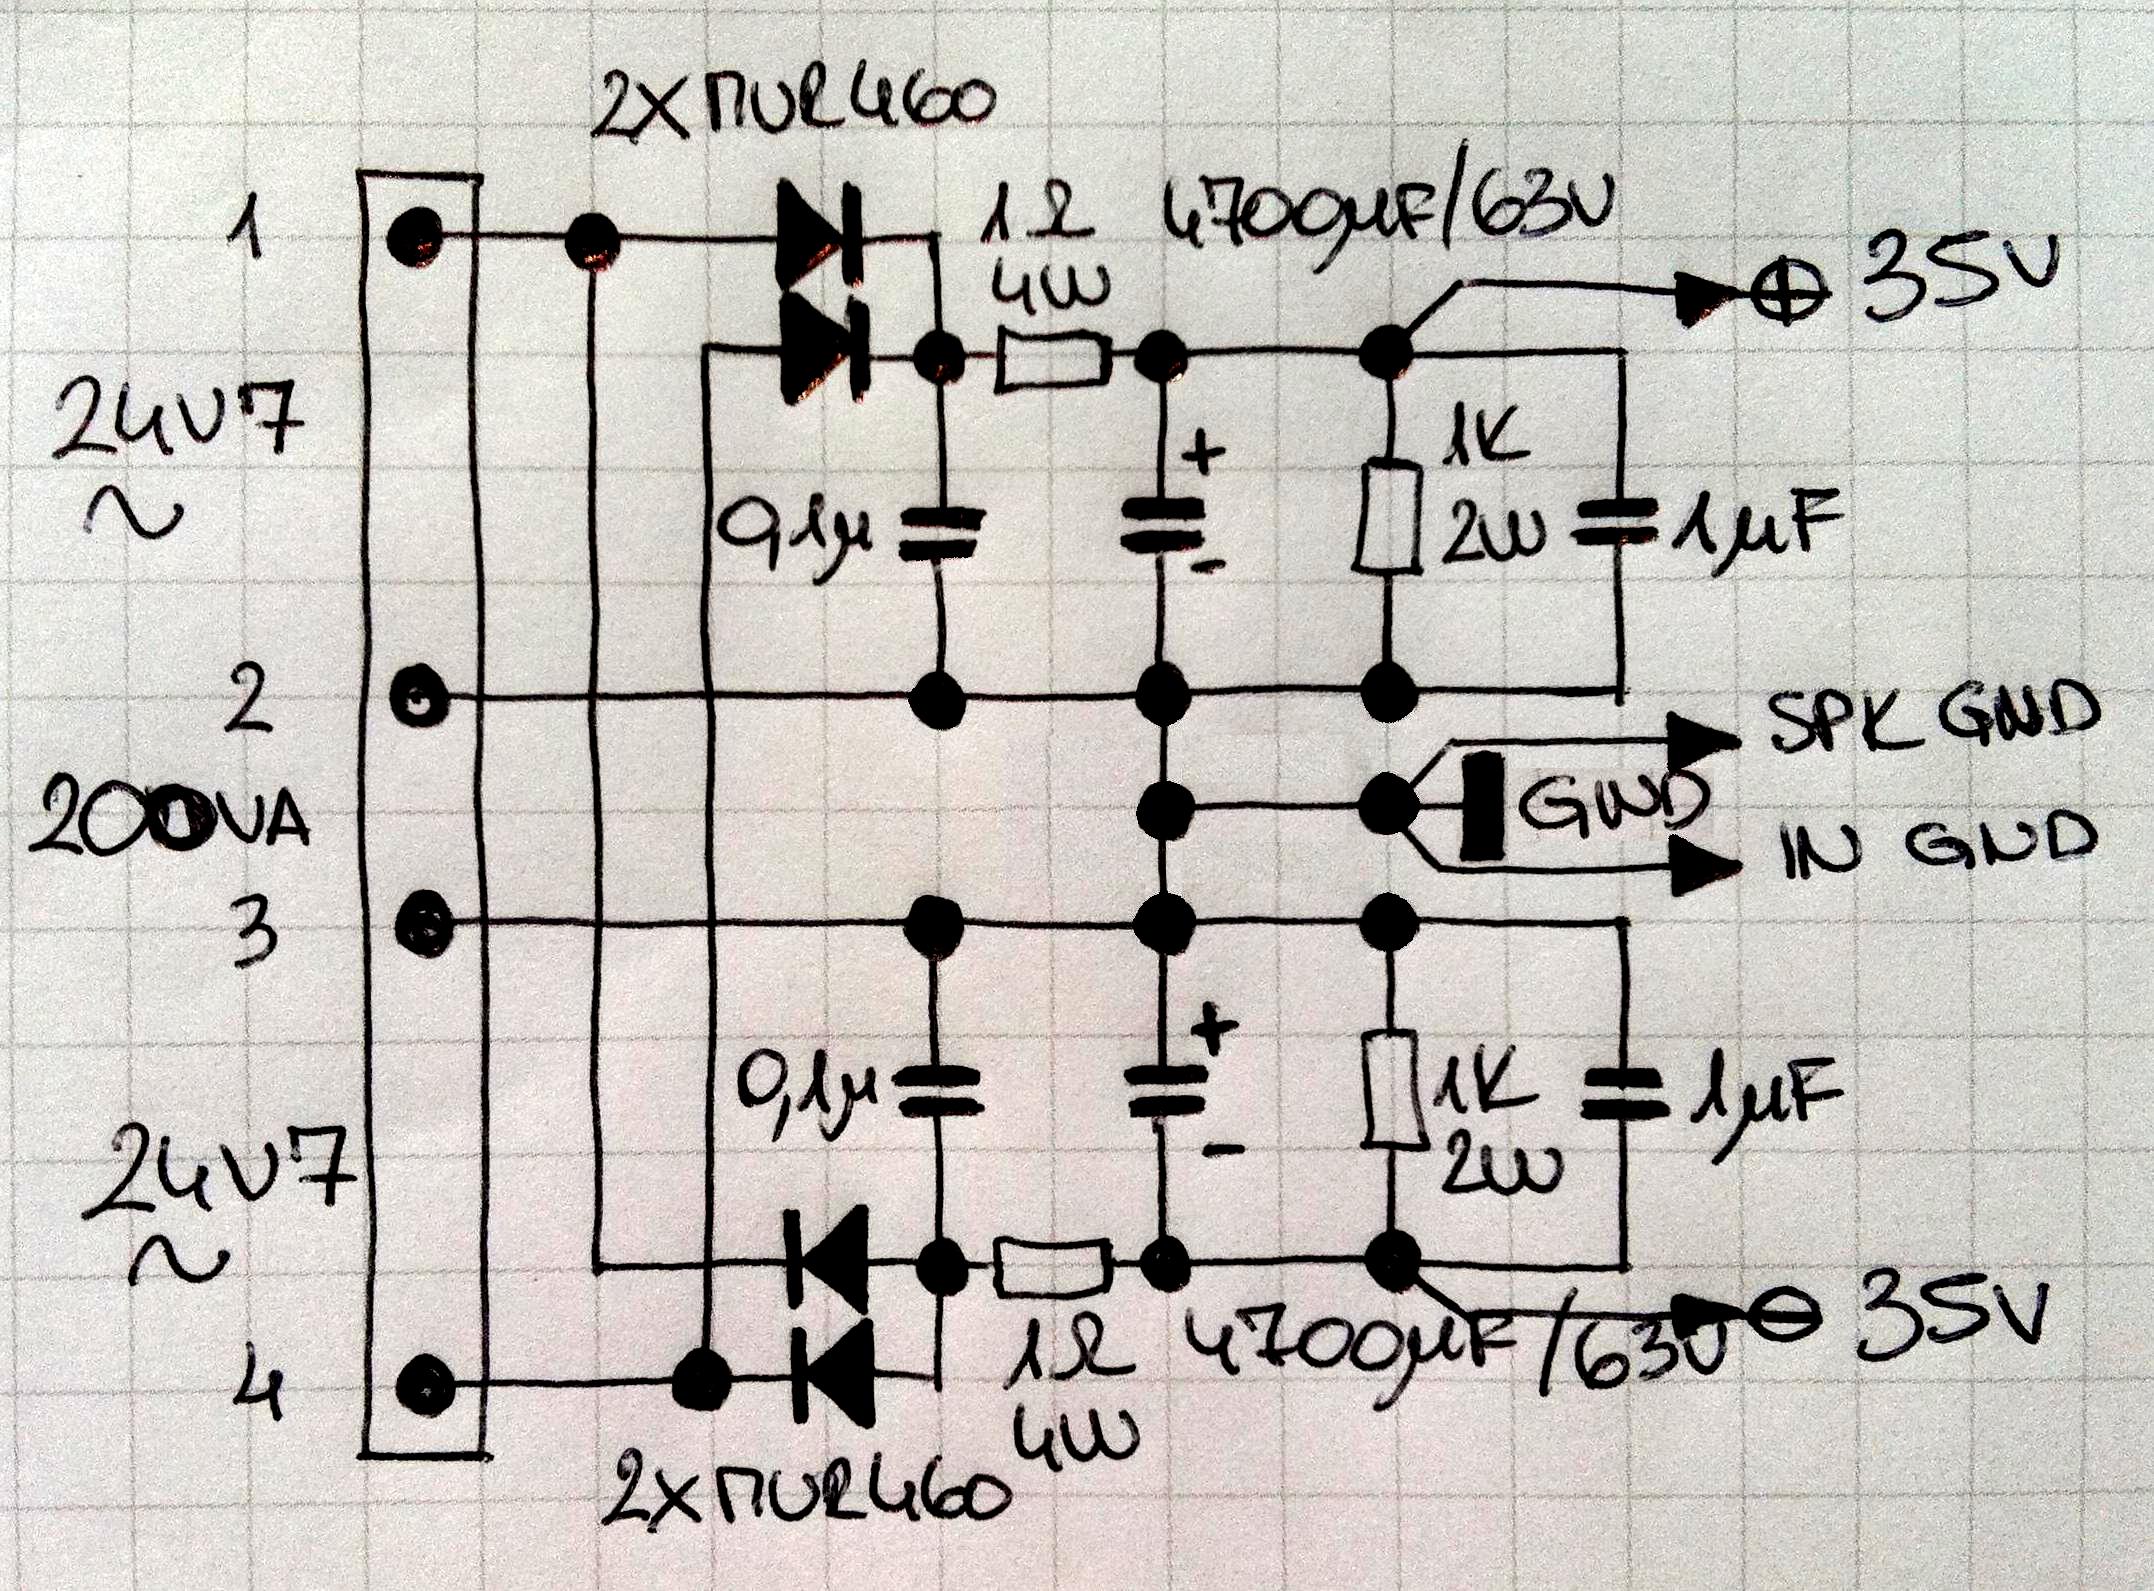 2XMUR460
1
1Ω
4W
4700µF/63V
⊕ 35V
24V7
~
+
1K
2W
0,1µ
-
1µF
2
SPK GND
200VA
GND
IN GND
3
+
0,1µ
1K
2W
1µF
-
24V7
~
⊖ 35V
1Ω
4W
4700µF/63V
4
2XMUR460